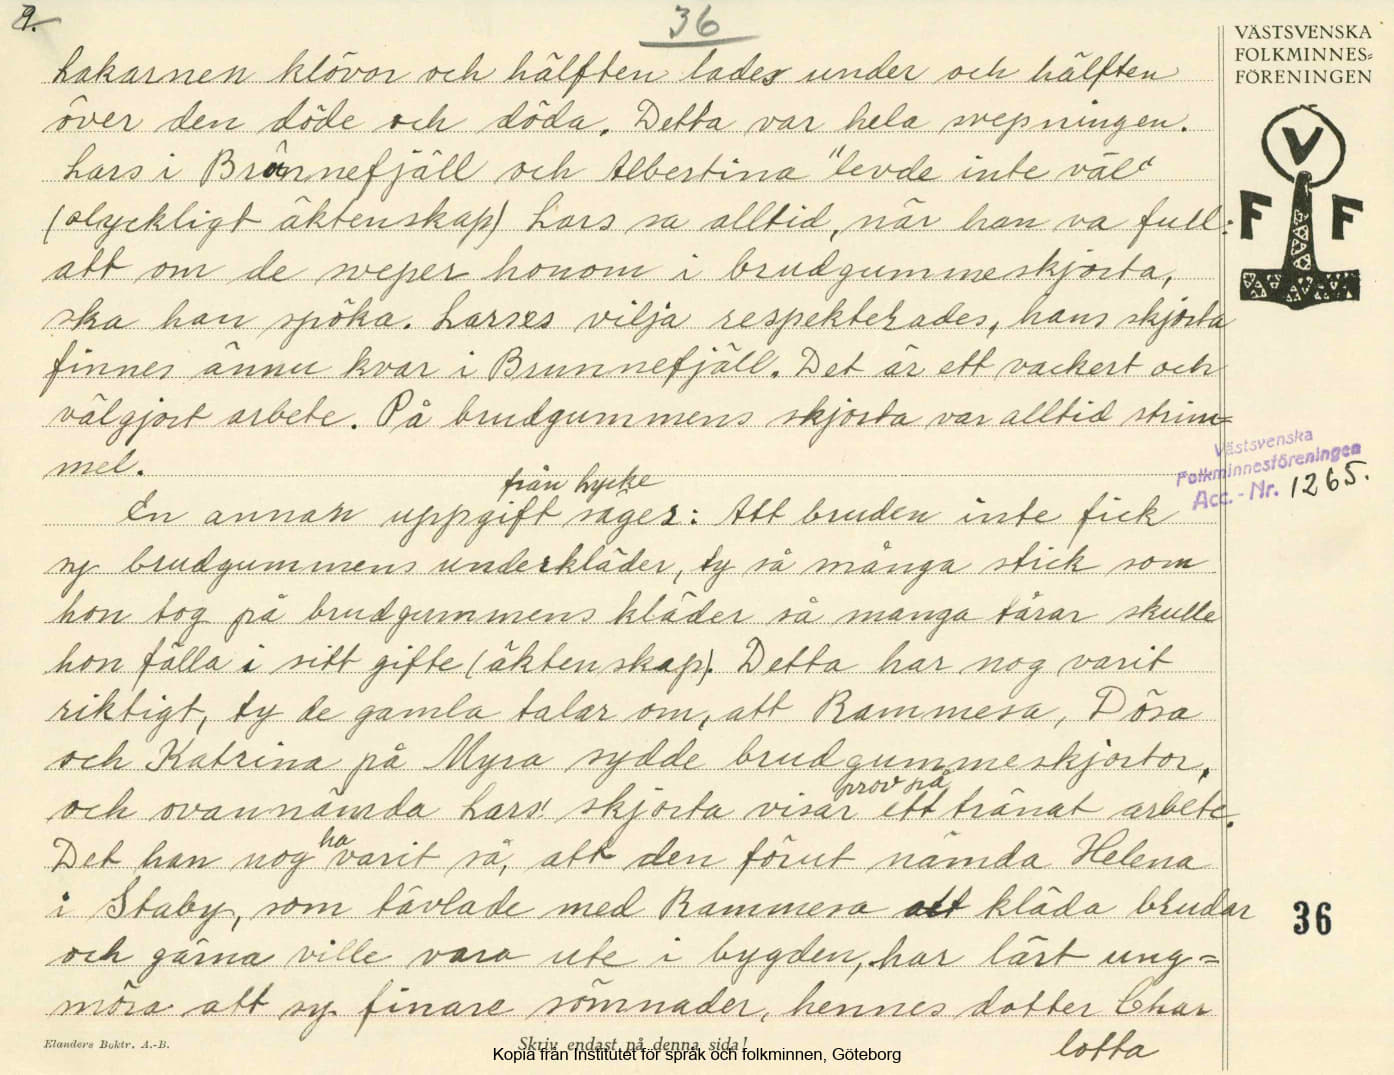 9.
36
VÄSTSVENSKA
FOLKMINNES=
FÖRENINGEN
V
F F
Lakarnen klövos och hälften lades under och hälften
över den döde och döda. Detta var hela svepningen.
Lars i Brunnefjäll och Albertina "levde inte väl"
(olyckligt äktenskap) Lars sa alltid, när han va full:
att om de sveper honom i brudgummeskjorta,
ska han spöka. Larses vilja respekterades, hans skjorta
finnes ännu kvar i Brunnefjäll. Det är ett vackert och
välgjort arbete. På brudgummens skjorta var alltid strim=
mel.
från Lycke
En annan uppgift säger: Att bruden inte fick
sy brudgummens underkläder, ty så många stick som
hon tog på brudgummens kläder så manga tårar skulle
hon fälla i sitt gifte (äktenskap). Detta har nog varit
riktigt, ty de gamla talar om, att Rammesa, Dösa
och Katrina på Myra sydde brudgummeskjortor,
prov på
och ovannämda Lars' skjorta visar ett tränat arbete.
ha
Det han nog varit så, att den förut nämda Helena
i Staby, som tävlade med Rammesa att kläda brudar
och gärna ville vara ute i bygden, har lärt ung=
möra att sy finare sömnader, hennes dotter Char
lotta
Västsvenska
Folkminnesföreningen
Acc.-Nr. 1265.
36
Elanders Boktr. A.-B.
Skriv endast på denna sida!
Kopia från Institutet för språk och folkminnen, Göteborg